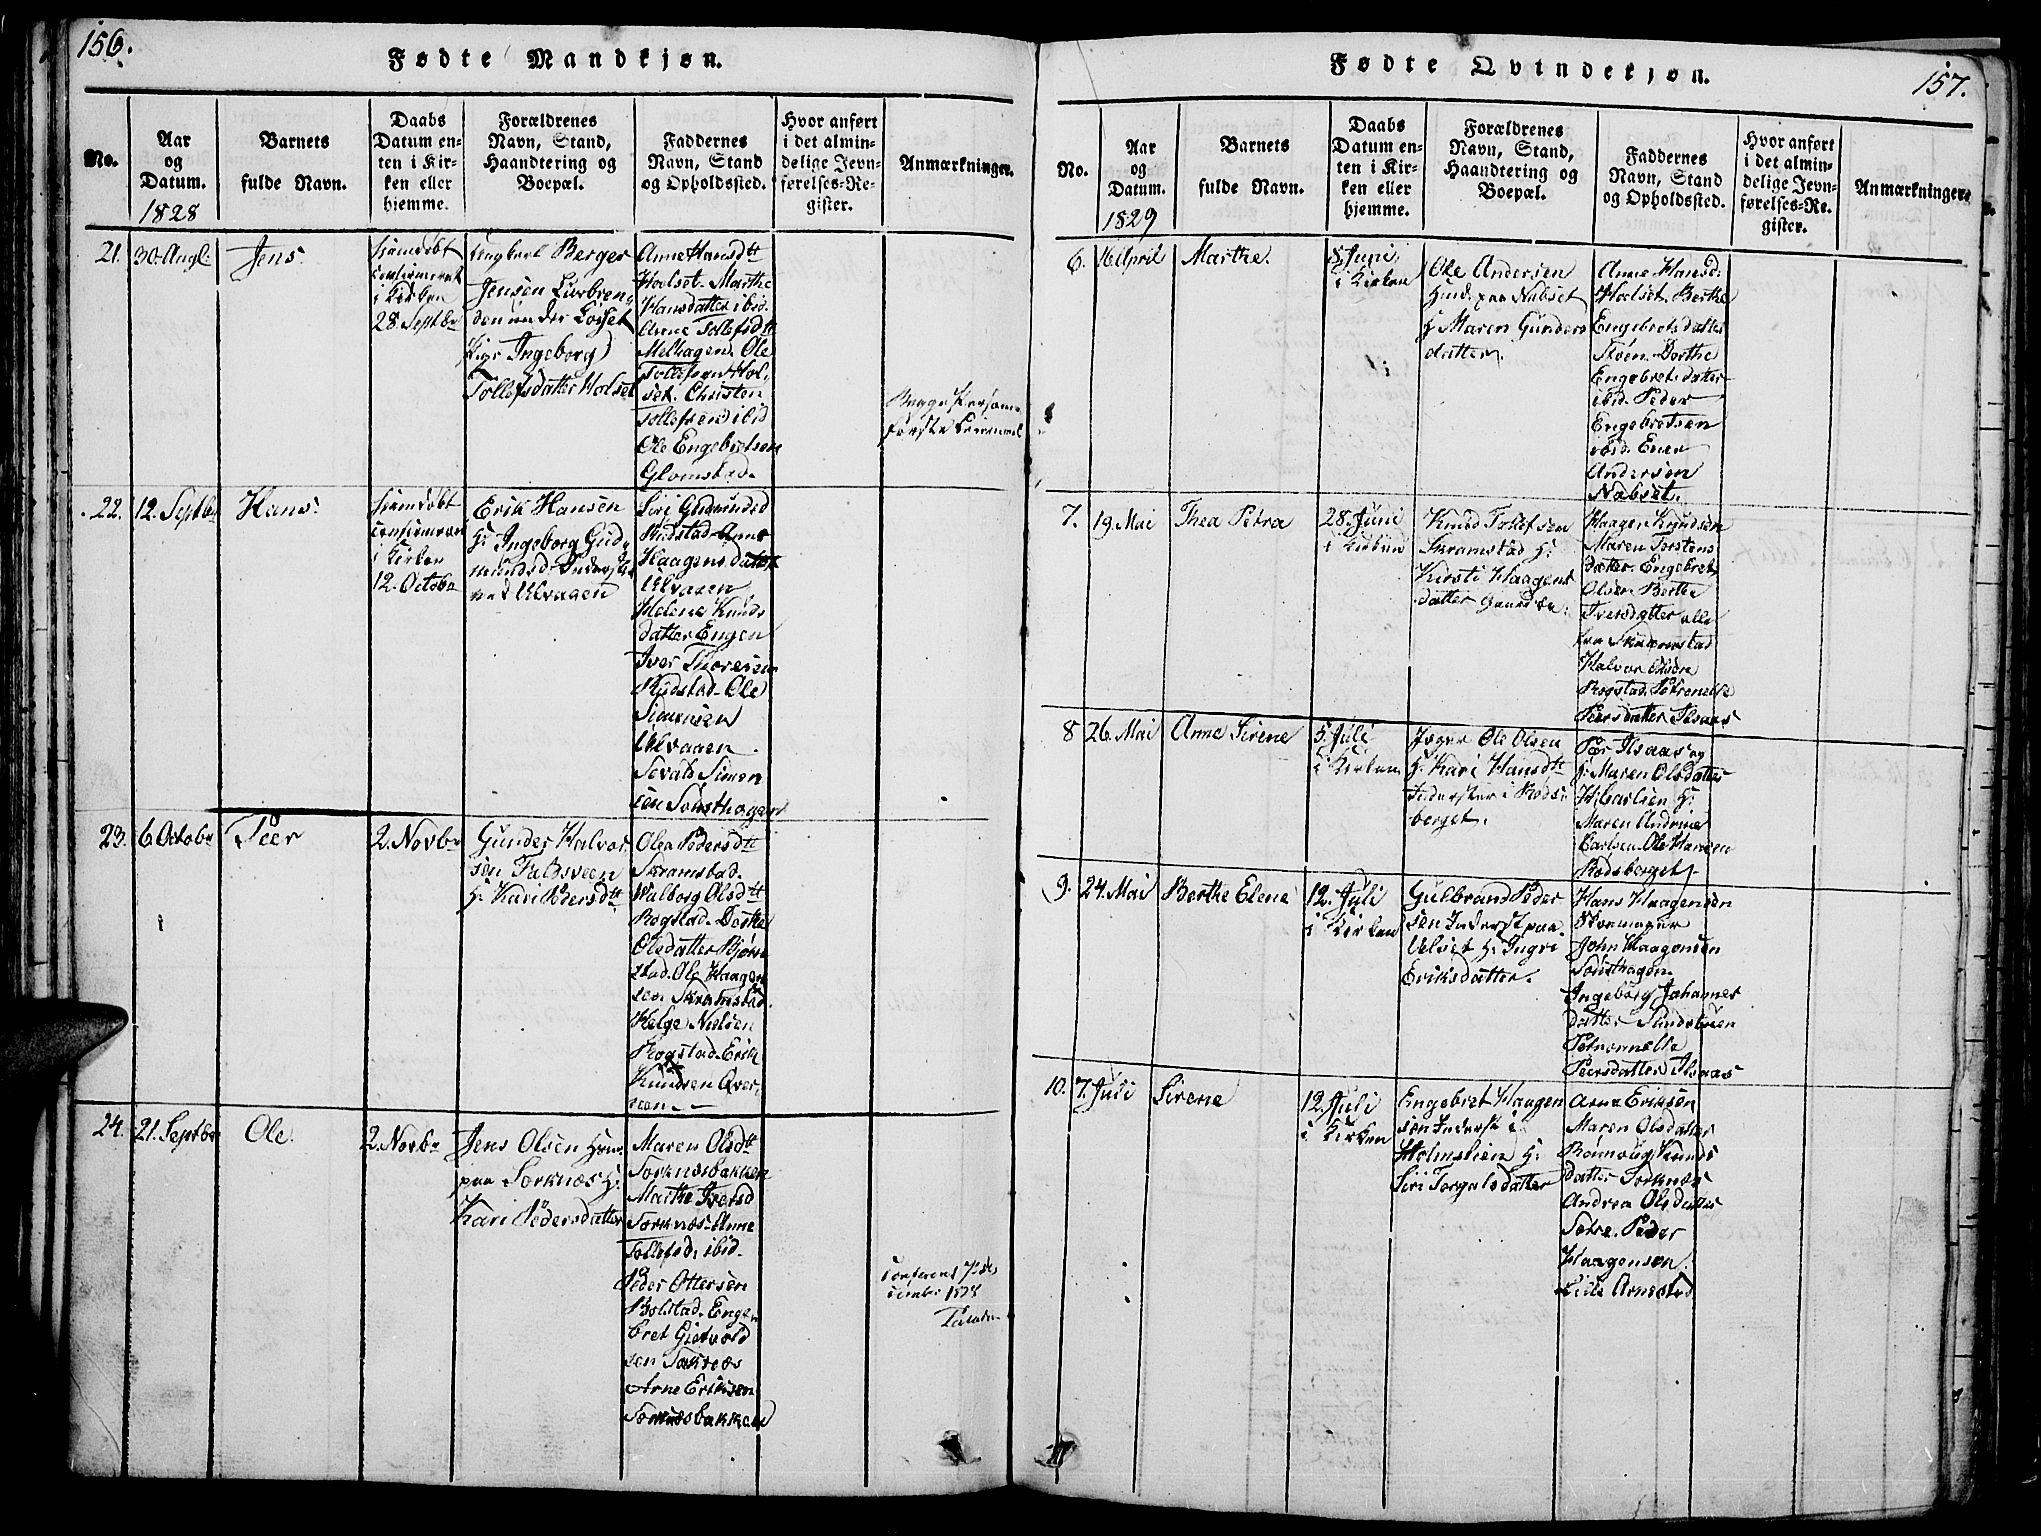 156.
Fødte Mandkjøn.
No.
Aar
og
Datum.
1828
Barnets
fulde Navn.
Daabs
Datum en-
ten i Kir-
ken eller
hjemme.
Forældrenes
Navn, Stand,
Haandtering og
Boepæl.
Faddernes
Navn, Stand
og Opholdssted.
Hvor anført
i det almin-
delige Jevn-
førelses-Re-
gister.
Anmærkninger.
21.
30. Augt:
Jens.
hjemdøbt
confirmeret
i Kirken
28. Septbr
Berger
Jensen
under Losset
Ingeborg
Tollefsdatter Holset
Anne Hansdtt
Holset. Marthe
Hansdatter ibid.
Anne Tollefsdtt
Melhagen. Ole
Tollefsen Hol-
set. Christen
Tollefsen ibid
Ole Engebretsen
Glomstad.
Begge Personers
første Leiermål
22.
12. Septbr
Hans.
hjemdøbt
confirmeret
i Kirken
12. Octobr
Erik Hansen
H: Ingeborg Gud-
mundsdr Inderster
ved Ulvagen
Siri Gudmundsd
Rudstad Anne
Haagensdatter
Ulvagen
Helene Knuds
datter Engen
Iver Thoresen
Rudstad. Ole
Simensen
Ulvagen
Sevald Simen
sen Sønsthagen
23.
6. Octobr
Peer
2. Novbr
Gunder Halvor
sen Faldsveen
H: Kari Pedersdtt
Olea Pedersdtt
Skramstad.
Walborg Olsdtt
Rogstad. Dorthe
Olsdatter Bjørn
stad. Ole Haagen
sen Skramstad.
Helge Nielsen
Rogstad. Erik
Knudsen Øver
seen.
24.
21. Septbr
Ole.
2. Novbr
Jens Olsen Huusm
paa Sorknæs H:
Kari Pedersdatter
Maren Olsdtt
Sorknesbakken
Marthe Iversd
Sorknæs. Anne
Tollefsd. ibid.
Peder Ottersen
Bolstad. Enge-
bret Gjetvold
sen Sorknæs
Arne Eriksen
Sorknæsbakken
1828
157.
Fødte Qvindekjøn.
No.
Aar
og
Datum.
1829
Barnets
fulde Navn.
Daabs
Datum en-
ten i Kir-
ken eller
hjemme.
Forældrenes
Navn, Stand,
Haandtering og
Boepæl.
Faddernes
Navn, Stand
og Opholdssted.
Hvor anført
i det almin-
delige Jevn-
førelses-Re-
gister.
Anmærkninger.
6.
16 April
Marthe.
8. Juni
i Kirken
Ole Andersen
Huusm. paa Nabset
H: Maren Gunders
datter.
Anne Hansd.
Hoelset. Berthe
Engebretsdatter
Stöen. Dorthe
Engebretsdatter
ibid. Peder
Engebretsen
ibid. Even
Andersen
Nabset.
7.
19. Mai
Thea Petra
28. Juni
i Kirken
Knud Tollefsen
Skramstad H:
Kirsti Haagens
datter
Haagen Knudsen
Maren Torstens
datter. Engebret
Olsen. Berthe
Iversdatter alle
fra Skramstad
Halvor Olsen
Rogstad. Petronelle
Peersdatter Ilsaas
8
26. Mai
Anne Sirene
5. Juli
i Kirken
Jæger Ole Olsen
H: Kari Hansdtt
Inderster i Rods-
berget.
Per Ilsaas og
H: Maren Olsdatter
H: Carlsen H:
Maren Andrine
Carlsen. Ole Hansen
Rodsberget.
9.
24. Mai
Berthe Elene
12. Juli
i Kirken
Gulbrand Peder
sen Inderst paa
Ulset H: Ingri
Eriksdatter.
Hans Haagensen
Skomager
John Haagensen
Sønsthagen
Ingeborg Johannes
datter Sundstuen
Petronnelle
Peersdatter Ilsaas
10.
7. Juli
Sirene
12. Juli
i Kirken
Engebret Haagen
sen Inderst i
Holmslien H:
Siri Torgalsdatter
Arne Eriksen
Maren Olsdatter
Rønnaug Knuds
datter Sorknæs
Andrea Olsdatter
Sætre. Peder
Haagensen.